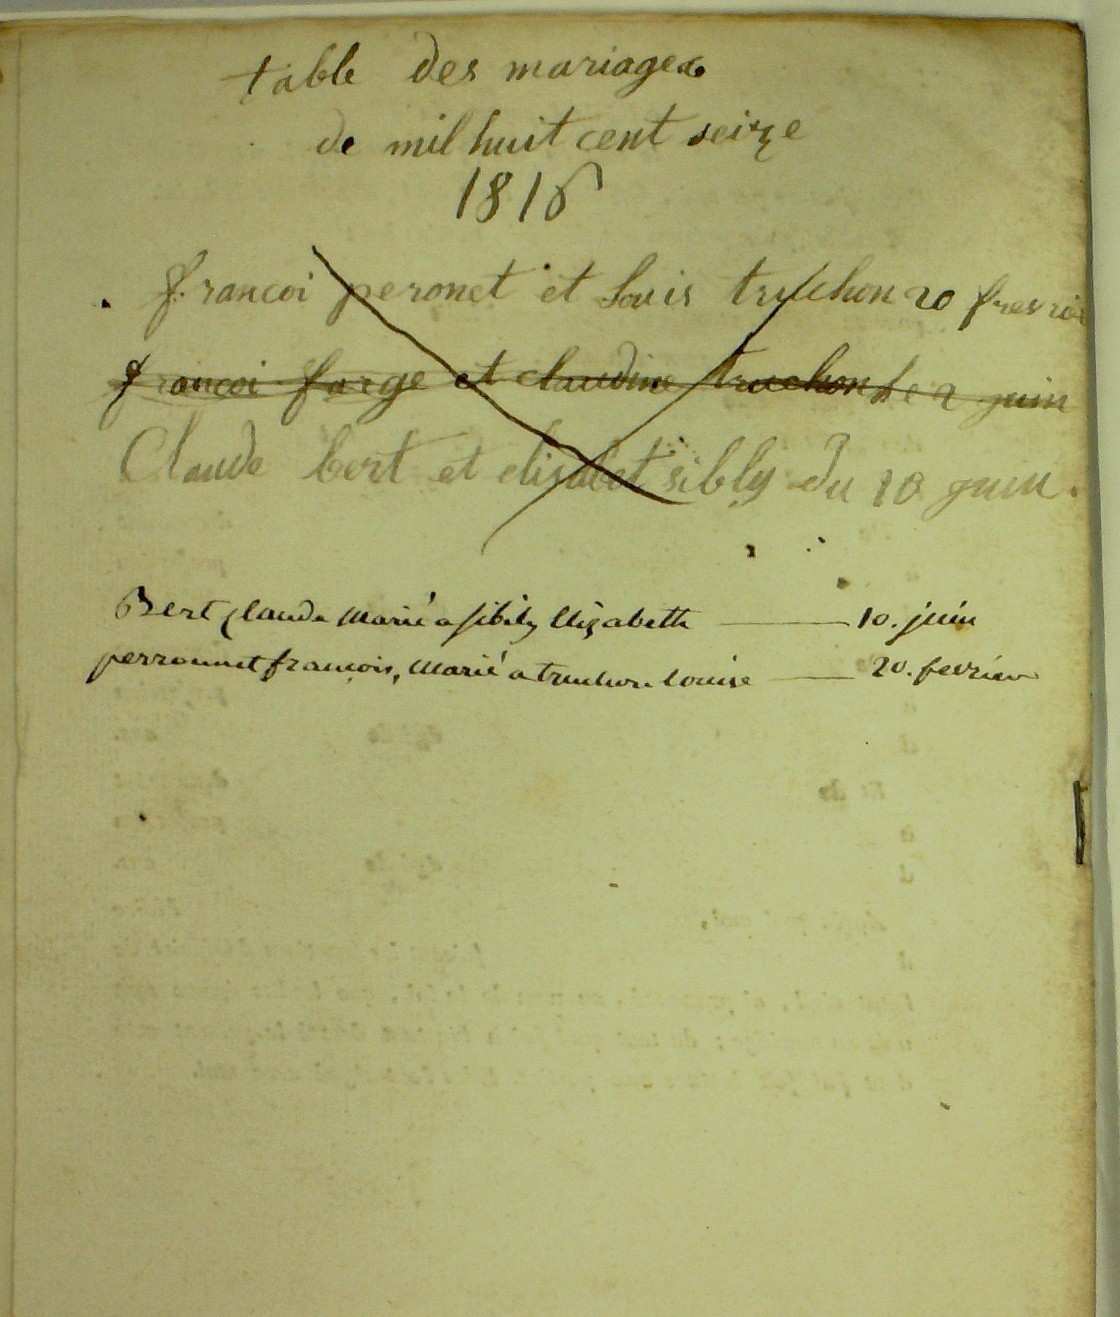 table des mariages
de mil huit cent seize
1816
francoi peronet et Louis truchon 20 fresrier
francoi farge et claudine truchon le 2 juin
Claude bert et elisabet sibly du 10 juin.
Bert Claude Marié a sibily Elizabeth 10. juin
perronnet francois, Marié a truchon louise 20. fevrier